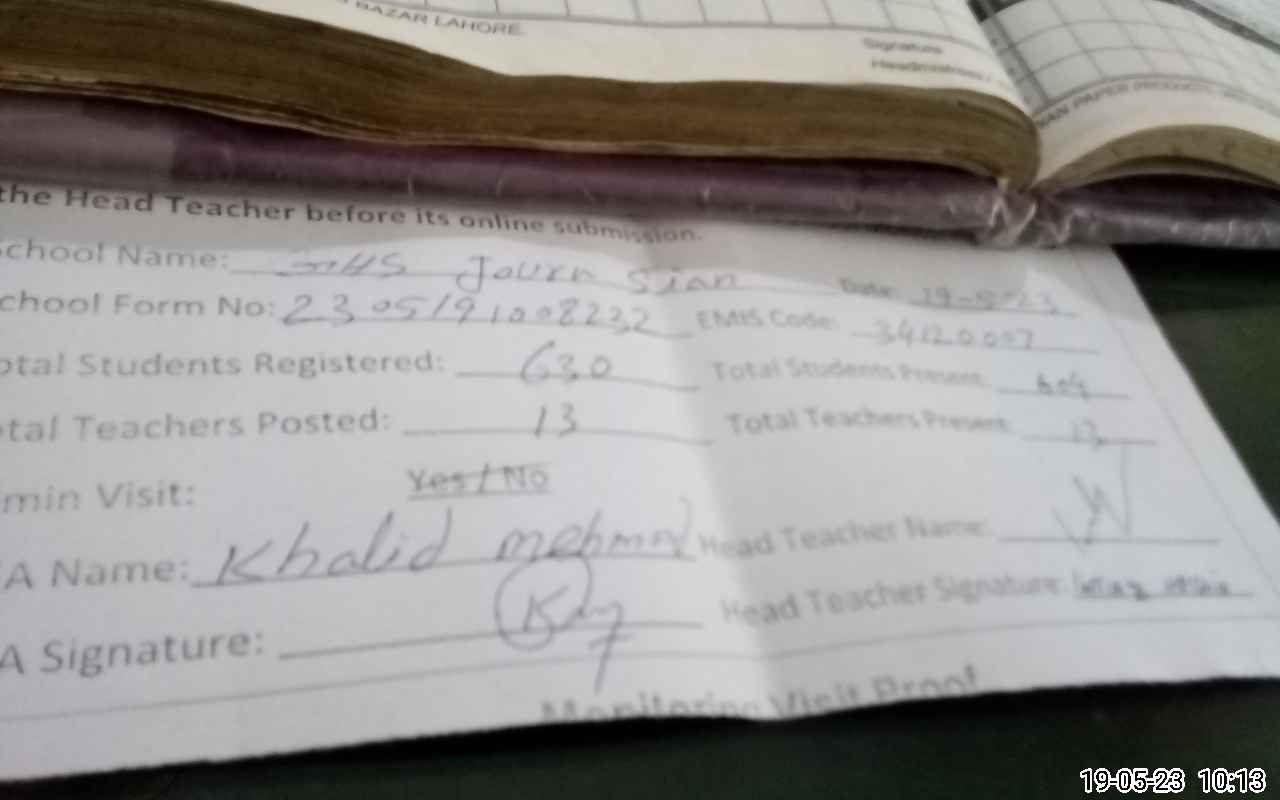 BAZAR LAHORE.
Signature
Headmistress
PAPER PRODUCTS
the Head Teacher before its online submission.
School Name: GHS Journ Sian Date: 19-5-23
School Form No: 2305191008232 EMIS Code: 34120007
Total Students Registered: 630 Total Students Present: 604
Total Teachers Posted: 13 Total Teachers Present: 12
min Visit: Yes / No
A Name: Khalid mehmod Head Teacher Name:
A Signature: Head Teacher Signature:
Monitoring Visit Proof
19-05-23 10:13